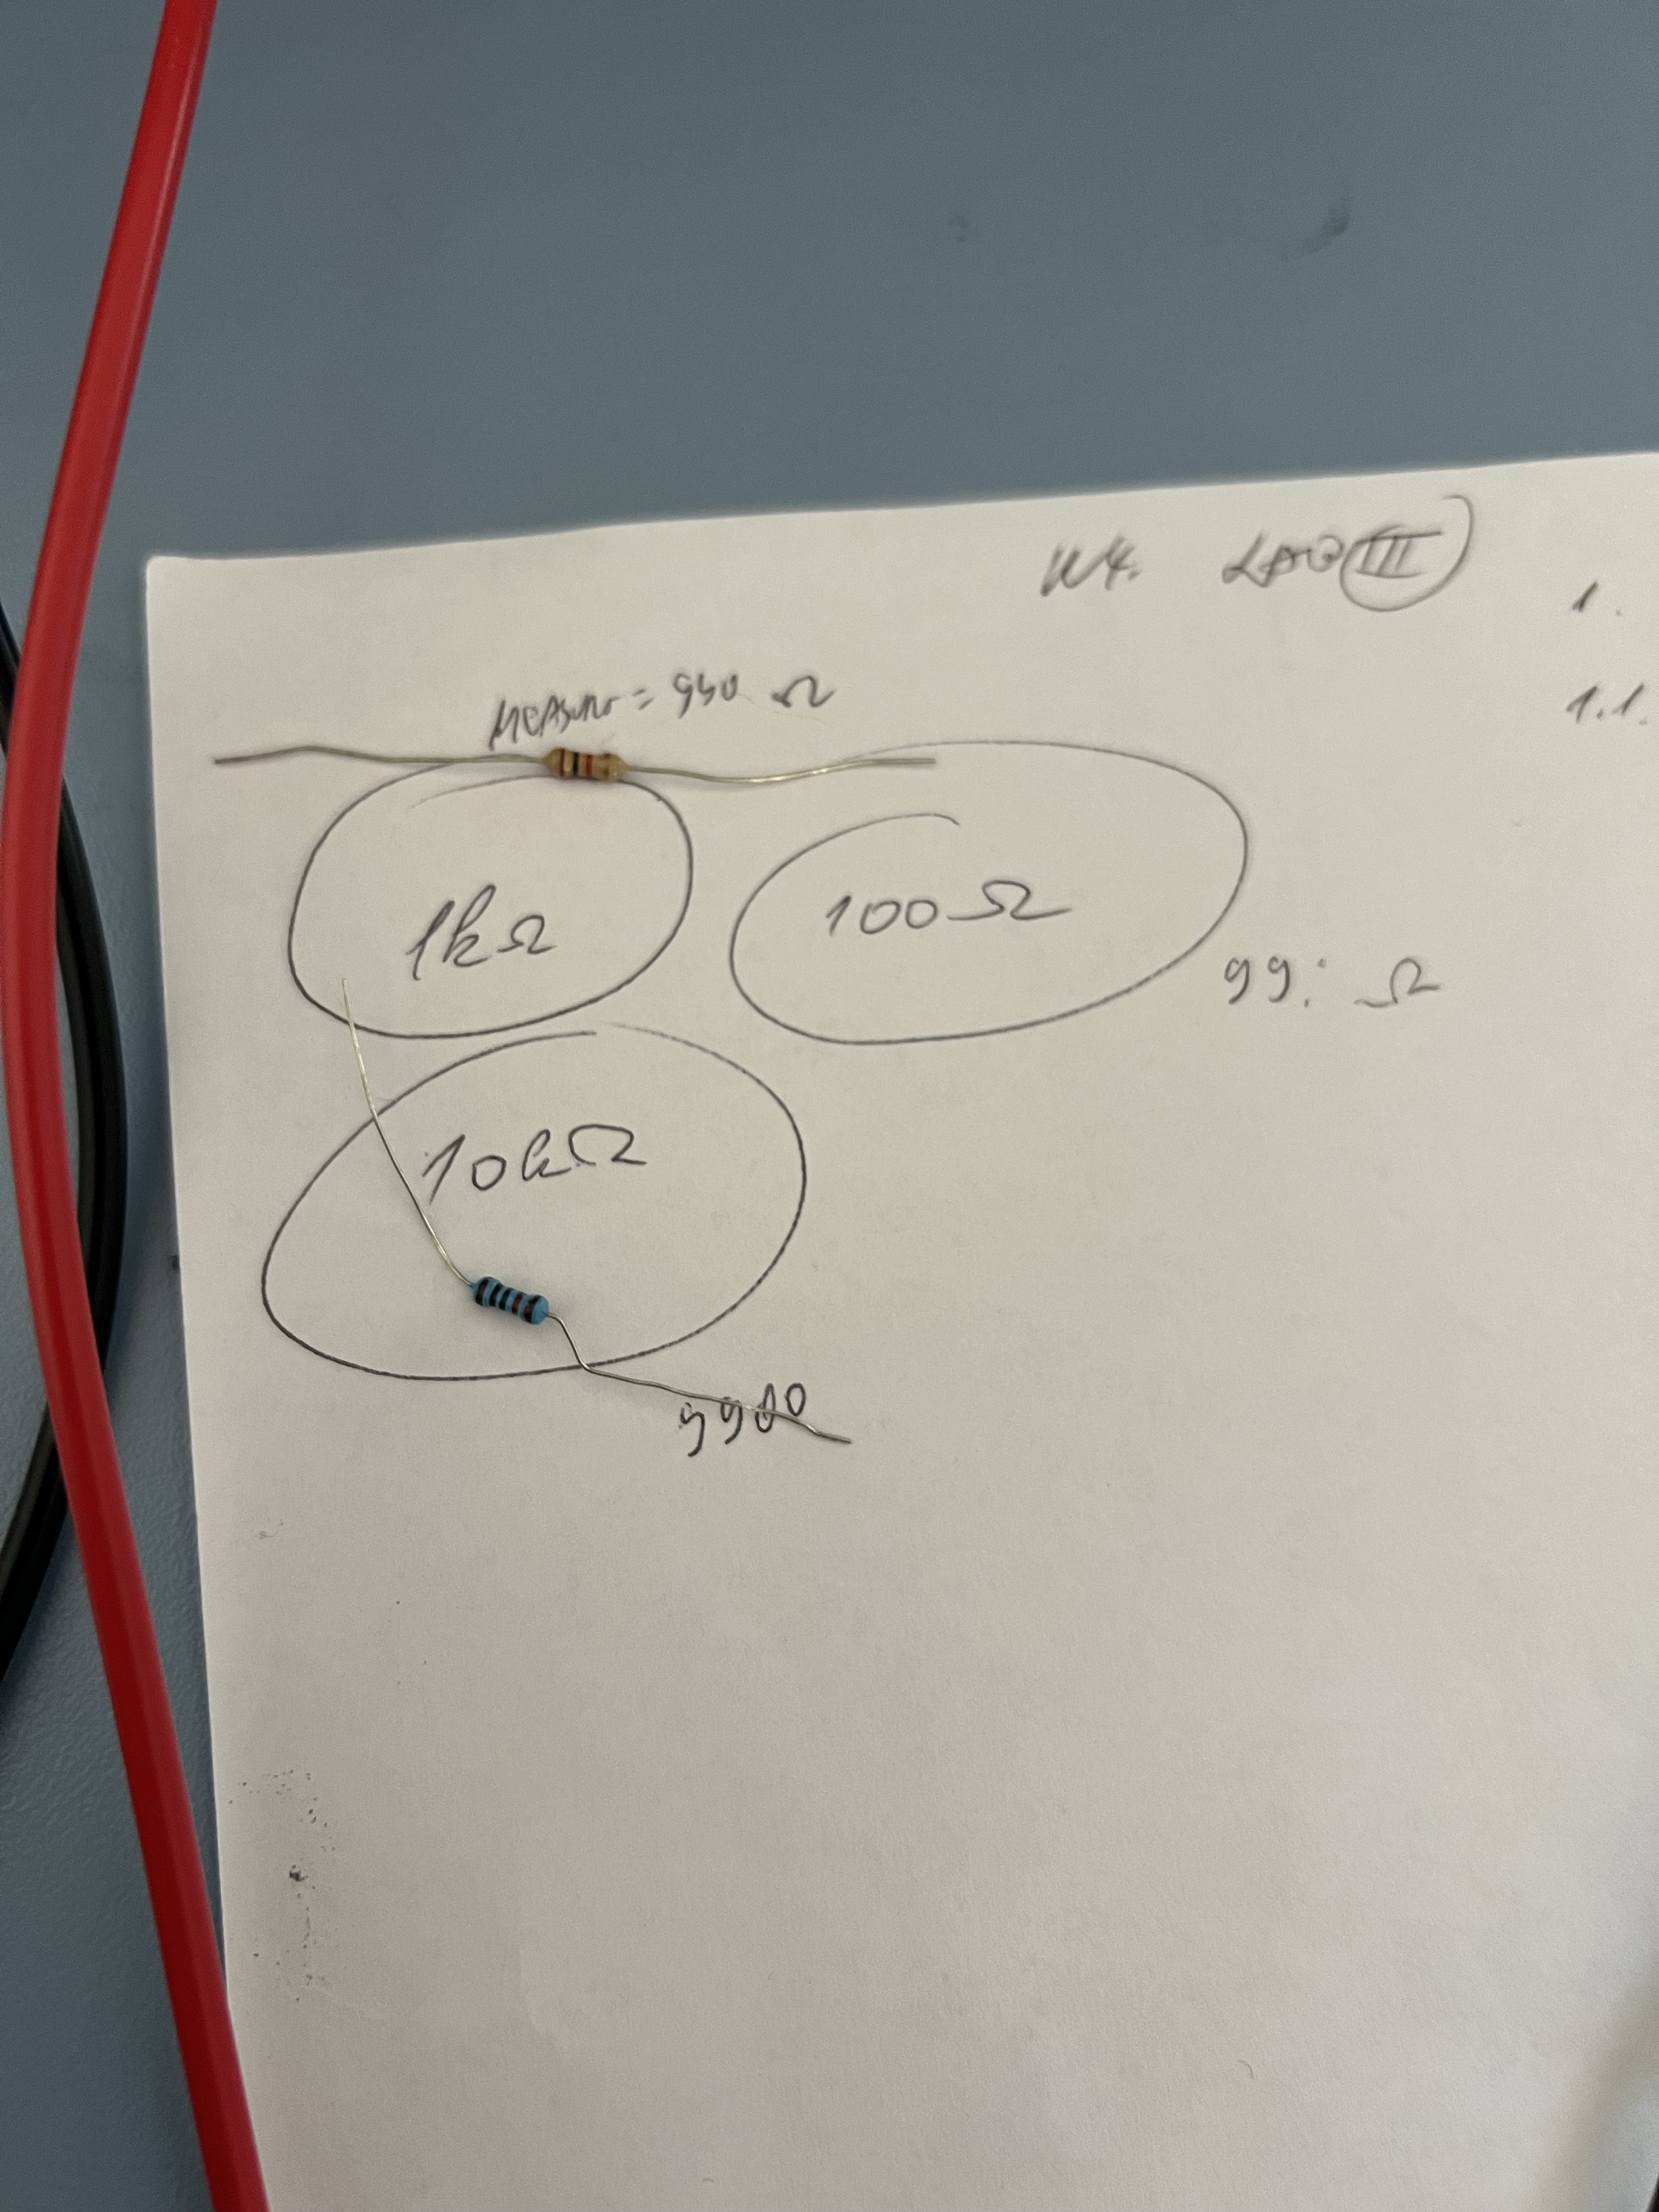 W4. LAB III
1.
1.1.
Measure = 990 Ω
1kΩ
100Ω
99. Ω
10kΩ
9900